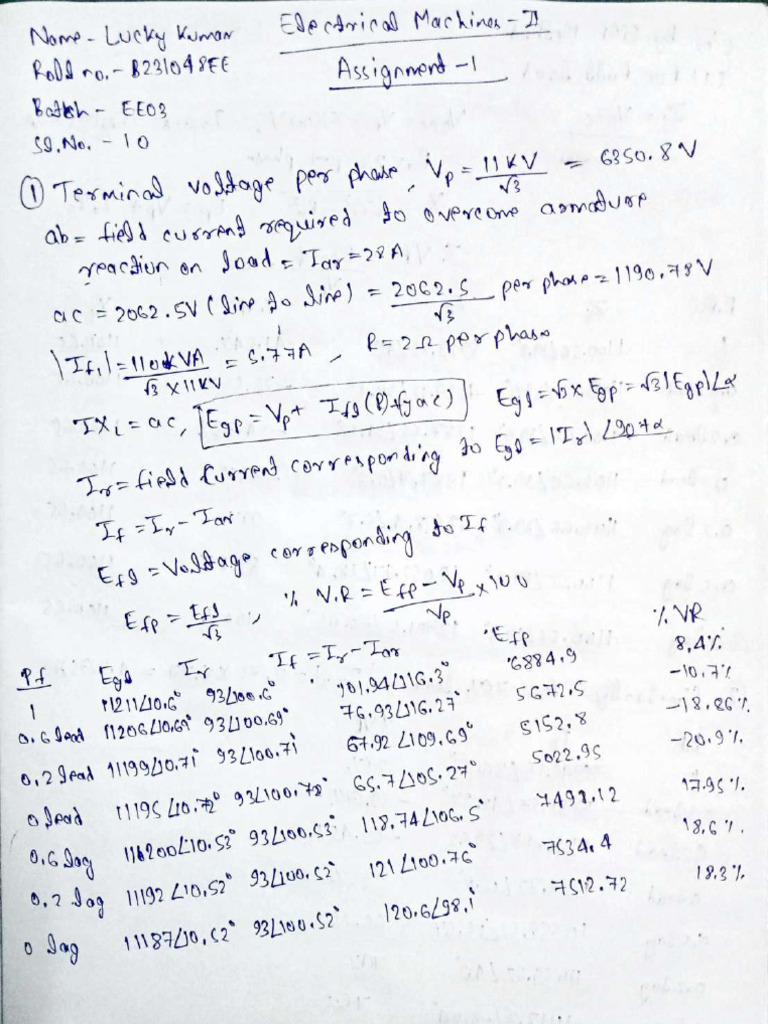 Name - Lucky Kumar
Electrical Machines - II
Roll no. - B231048EE
Assignment - 1
Batch - EE03
Sl. No. - 10
① Terminal voltage per phase, Vp = 11 KV / √3 = 6350.8 V
ab = field current required to overcome armature
reaction on load = Iar = 28A
ac = 2062.5V (line to line) = 2062.5 / √3 per phase = 1190.78V
|If1| = 110KVA / √3 × 11KV = 5.77A, R = 2Ω per phase
IXL = ac, Egp = Vp + If1(R)+j(ac) Egl = √3 × Egp = √3|Egp|∠α
Ir = field current corresponding to Egl = |Ir| ∠90+α
If = Ir - Iar
Efl = Voltage corresponding to If
Efp = Efl / √3, % V.R = Efp - Vp / Vp × 100
Pf Egl Ir If = Ir - Iar Efp % VR
1 11211∠10.6° 93∠100.6° 101.94∠116.3° 6884.9 8.4%
0.6 lead 11206∠10.69° 93∠100.69° 76.93∠116.27° 5672.5 -10.7%
0.2 lead 11199∠10.71 93∠100.71 67.92∠109.69° 5152.8 -18.86%
0 lead 11195∠10.72° 93∠100.72° 65.7∠105.27° 5022.95 -20.9%
0.6 lag 116200∠10.53° 93∠100.53° 118.74∠106.5° 7498.12 17.95%
0.2 lag 11192∠10.52° 93∠100.52° 121∠100.76° 7534.4 18.6%
0 lag 11187∠10.52° 93∠100.52° 120.6∠98.1 7512.72 18.3%